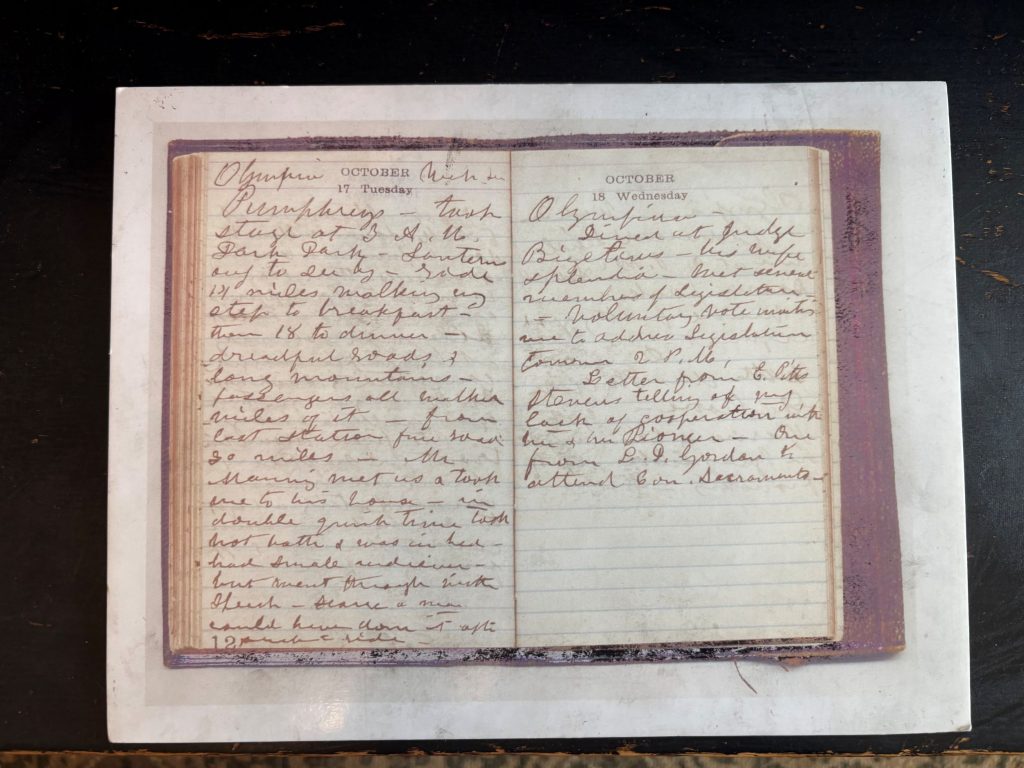 Olympia
OCTOBER
17 Tuesday
Pumphreys - took
stage at 3 A. M.
Dark Dark - Lantern
to see by - rode
miles walking
step to breakfast -
then 18 to dinner -
dreadful roads &
long mountains -
passengers all walked
miles of it - from
last station fine road
20 miles - Mr
Manning met us & took
me to his house - in
double quick time took
hot bath & was in bed -
had small audience -
but went through with
speech - scarce a man
could have done it after
ride
OCTOBER
18 Wednesday
Olympia -
Dined at Judge
Bigelows - his wife
splendid - Met several
members of Legislature
- voluntary vote invites
me to address Legislature
2 P. M.
Letter from E. Pitts
Stevens telling of my
lack of cooperation with
her & her Pioneer - One
from L. D. Gordon to
attend Con. Sacramento -